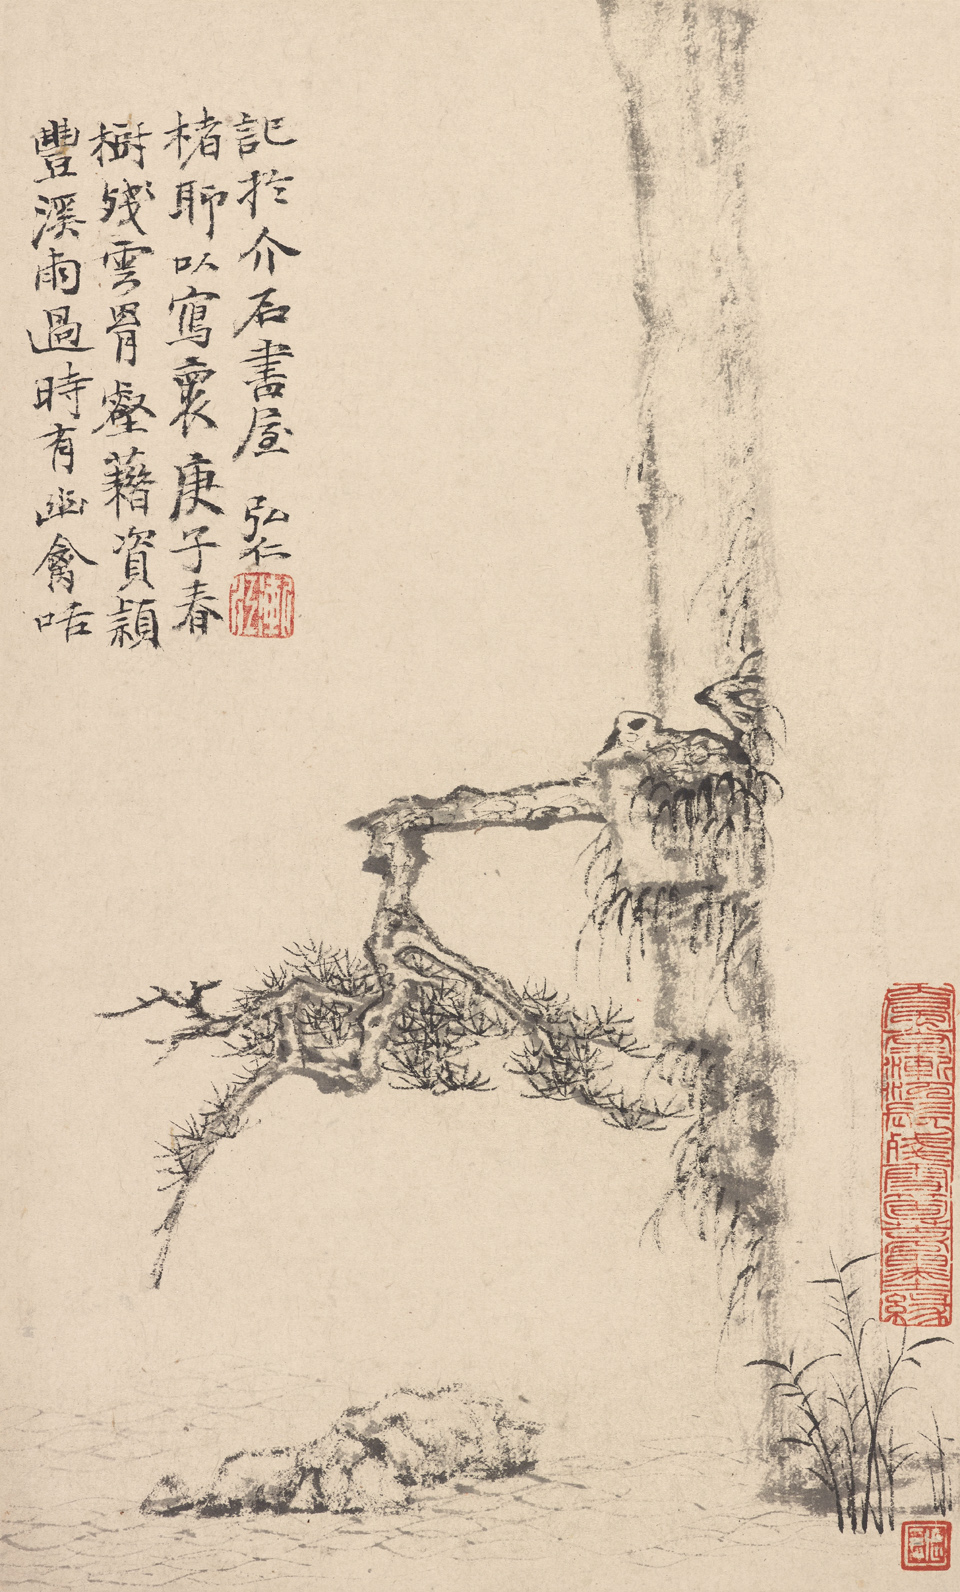 豐溪雨過時有幽禽咶
樹殘雲罥壑藉資穎
楮聊以寫衷庚子春
記於介石書屋 弘仁